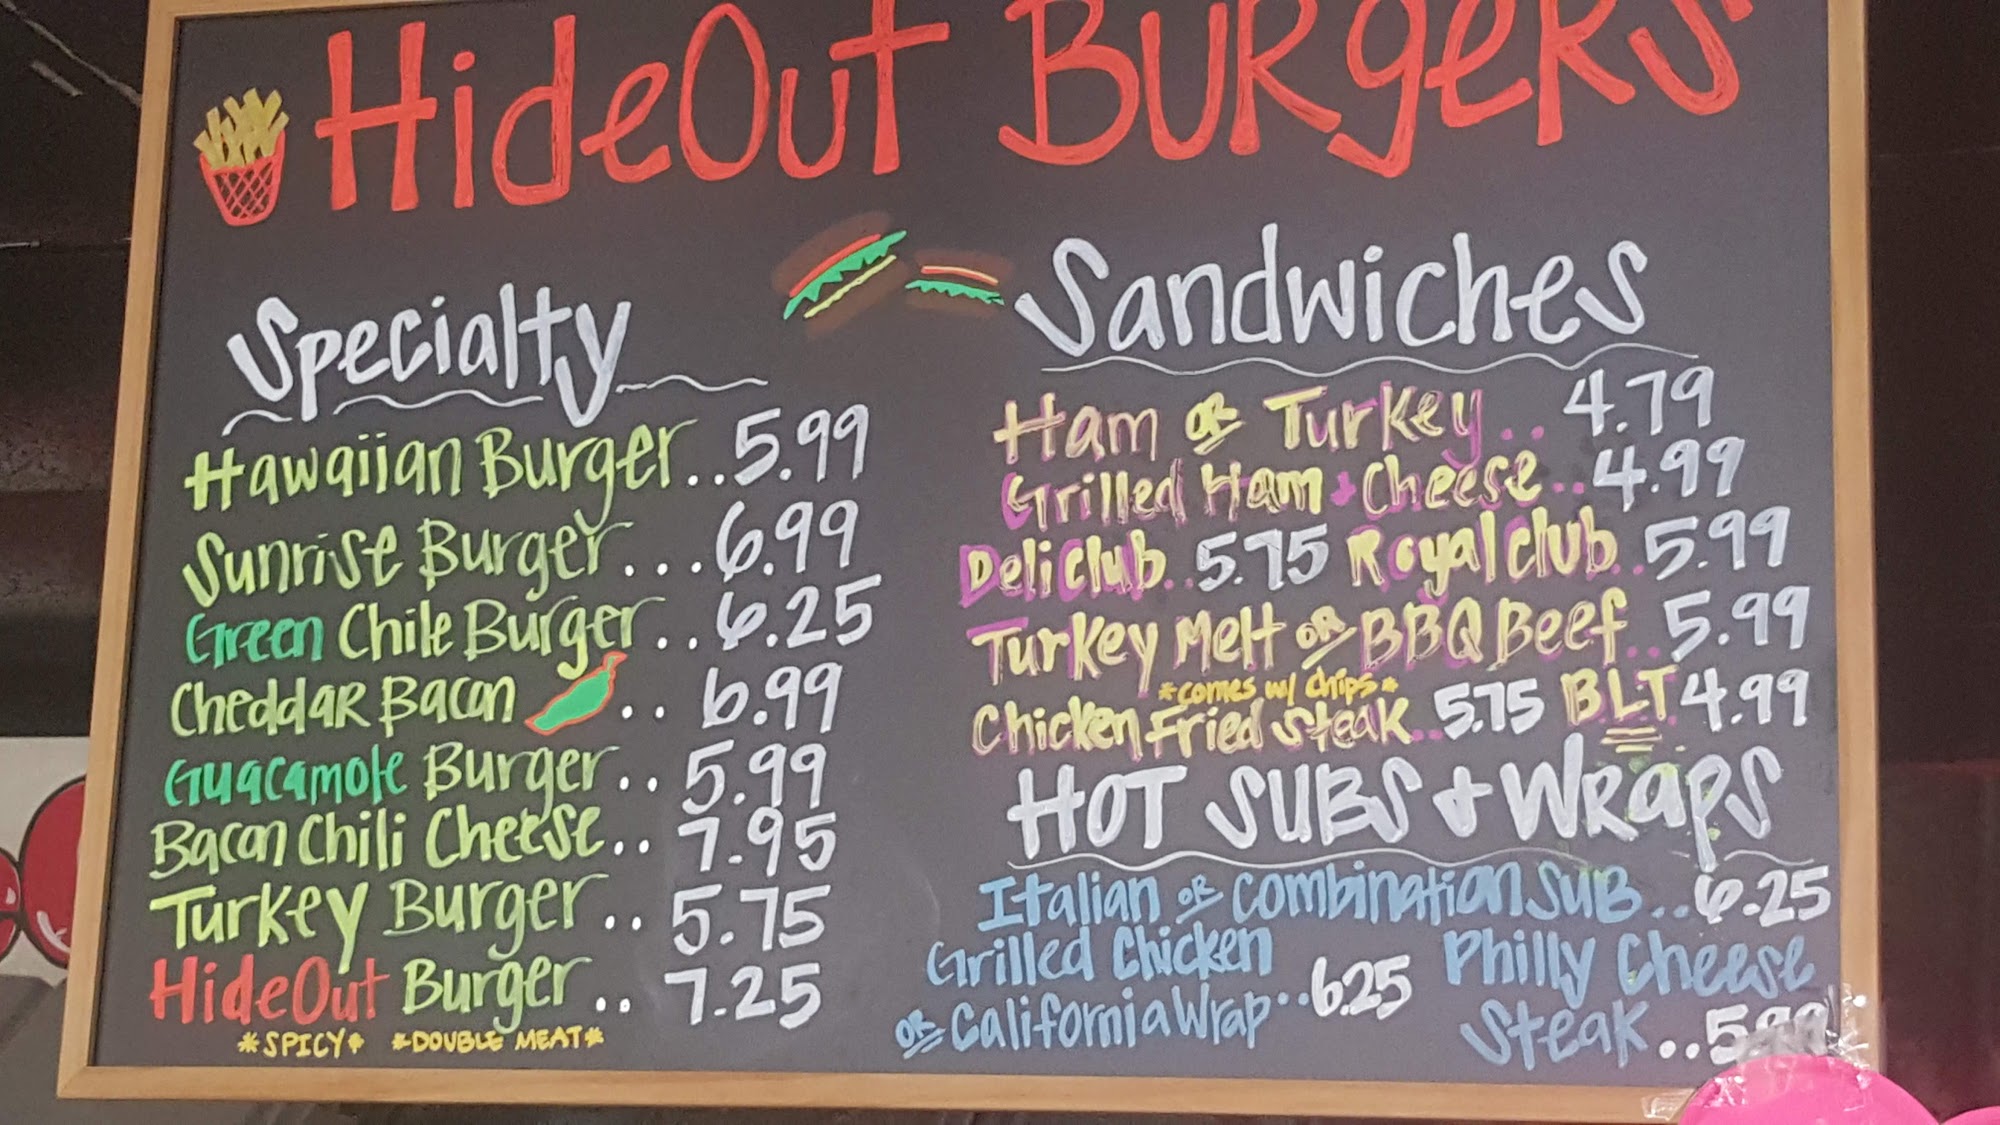 HideOut Burgers
Specialty
Hawaiian Burger..5.99
Sunrise Burger...6.99
Green Chile Burger..6.25
Cheddar Bacon .. 6.99
Guacamole Burger..5.99
Bacon Chili Cheese..7.95
Turkey Burger..5.75
HideOut Burger..7.25
*SPICY* *DOUBLE MEAT*
Sandwiches
Ham or Turkey..4.79
Grilled Ham + Cheese..4.99
Deli Club..5.75 Royal Club..5.99
Turkey Melt or BBQ Beef..5.99
*comes w/ chips*
Chicken Fried Steak..5.75 BLT 4.99
HOT SUBS + WRAPS
Italian or Combination Sub..6.25
Grilled Chicken
or California Wrap..6.25
Philly Cheese
Steak..5.99